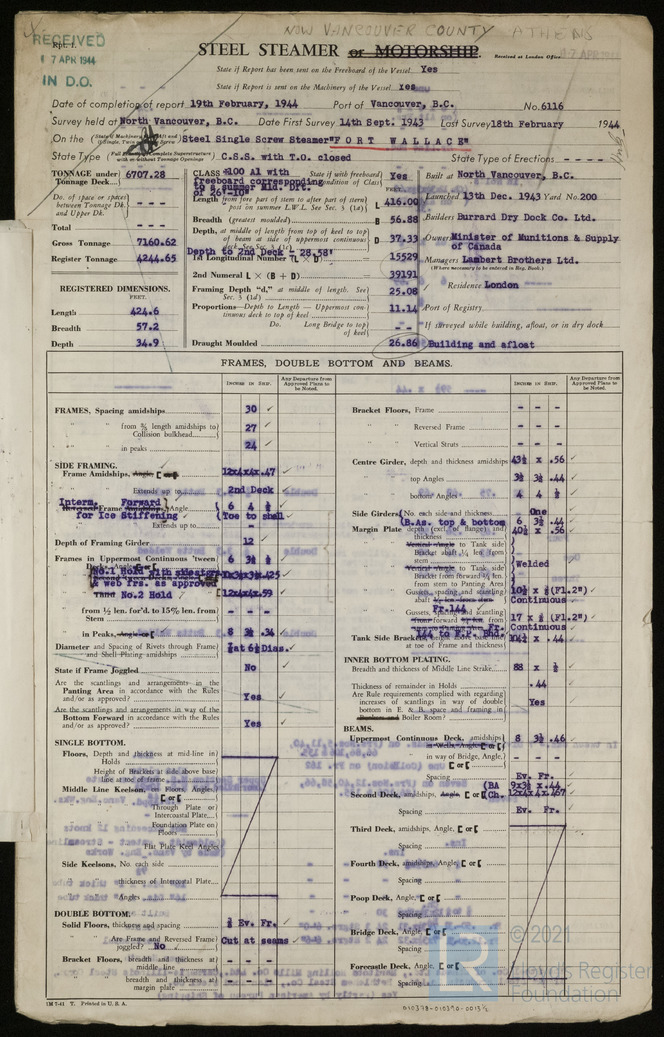 NOW VANCOUVER COUNTY ATHENS
RECEIVED
Rpt. 1.
17 APR 1944
IN D.O.
STEEL STEAMER or MOTORSHIP.
Received at London Office
State if Report has been sent on the Freeboard of the Vessel Yes
State if Report is sent on the Machinery of the Vessel Yes
Date of completion of report 19th February, 1944 Port of Vancouver, B.C. No. 6116
Survey held at North Vancouver, B.C. Date First Survey 14th Sept. 1943 Last Survey 18th February 1944
On the Steel Single Screw Steamer "FORT WALLACE"
State Type C.S.S. with T.O. closed State Type of Erections. - - - -
TONNAGE under Tonnage Deck 6707.28
Do. of space or spaces between Tonnage Dk. and Upper Dk. - - -
Total - - -
Gross Tonnage 7160.62
Register Tonnage 4244.65
REGISTERED DIMENSIONS.
FEET.
Length 424.6
Breadth 57.2
Depth 34.9
CLASS +100 A1 with freeboard corresponding to a summer Mld. Dft. of 26'-10" State if with freeboard condition of Class Yes
Length from fore part of stem to after part of stern post on summer L.W.L. See Sec. 3 (1a) L 416.00
Breadth (greatest moulded) B 56.88
Depth, at middle of length from top of keel to top of beam at side of uppermost continuous deck D 37.33
Depth to 2nd Deck - 28.58'
1st Longitudinal Number (L × D) 15529
2nd Numeral L × (B + D) 39191
Framing Depth "d," at middle of length. See Sec. 3 (1d) 25.08
Proportions—Depth to Length — Uppermost continuous deck to top of keel 11.14
Do. Long Bridge to top of keel - -
Draught Moulded 26.86
Built at North Vancouver, B.C.
Launched 13th Dec. 1943 Yard No. 200
Builders Burrard Dry Dock Co. Ltd.
Owner Minister of Munitions & Supply of Canada
Managers Lambert Brothers Ltd.
(Where necessary to be entered in Reg. Book.)
Residence London
Port of Registry
If surveyed while building, afloat, or in dry dock
Building and afloat
FRAMES, DOUBLE BOTTOM AND BEAMS.
INCHES IN SHIP.
Any Departure from Approved Plans to be Noted.
FRAMES, Spacing amidships 30
" " from ⅗ length amidships to Collision bulkhead 27
" " in peaks 24
SIDE FRAMING.
Frame Amidships, Angle, [ or 12x4x4x.47
" " Extends up to 2nd Deck
Interm. Forward Reversed Frame Amidships, Angle 6 4 ½
for Ice Stiffening (Toe to shell
" " Extends up to - -
Depth of Framing Girder 12
Frames in Uppermost Continuous 'tween Decks, Angle, [ or 6 3½ ½
No.1 Hold
& web frs. as approved
No.2 Hold 12x4x4x.59
" " from ½ len. for'd. to 15% len. from Stem - - -
" " in Peaks, Angle or [ 8 3½ .34
Diameter and Spacing of Rivets through Frame and Shell Plating amidships ⅞ at 6⅛ Dias.
State if Frame Joggled No
Are the scantlings and arrangements in the Panting Area in accordance with the Rules and/or as approved? Yes
Are the scantlings and arrangements in way of the Bottom Forward in accordance with the Rules and/or as approved? Yes
SINGLE BOTTOM.
Floors, Depth and thickness at mid-line in Holds
Height of Brackets at side above base line at toe of frame
Middle Line Keelson, on Floors, Angle, [ or [
" " Through Plate or Intercostal Plate
" " Foundation Plate on Floors
" " Flat Plate Keel Angles
Side Keelsons, No. each side
" " thickness of Intercostal Plate
" " Angles
DOUBLE BOTTOM.
Solid Floors, thickness and spacing ⅜ Ev. Fr.
" " Are Frame and Reversed Frame joggled? No Cut at seams
Bracket Floors, breadth and thickness at middle line - - -
" " breadth and thickness at margin plate - - -
Bracket Floors, Frame - - -
" " Reversed Frame - - -
" " Vertical Struts - - -
Centre Girder, depth and thickness amidships 43½ x .56
" " top Angles 3½ 3½ .44
" " bottom Angles 4 4 ½
Side Girders, No. each side and thickness One
(B.As. top & bottom 6 3½ .44
Margin Plate depth (excl. of flange) and thickness 40½ x .56
Vertical Angle to Tank side Bracket abaft ¼ len. from stem
Vertical Angle to Tank side Bracket from forward ¼ len. from stem to Panting Area Welded
Gusset, spacing and scantling abaft ¼ len. from stem Fr.144 10½ x ½ (Fl.2") Continuous
Gussets, spacing and scantling forward ¼ len. from Fr. 144 to F.P. Bhd. 17 x ½ (Fl.2") Continuous
Tank Side Brackets, height above base line at toe of Frame and thickness x .44
INNER BOTTOM PLATING.
Breadth and thickness of Middle Line Strake 88 x ½
Thickness of remainder in Holds .44
Are Rule requirements complied with regarding increases of scantlings in way of double bottom in E. & B. space and framing in Bunkers and Boiler Room? Yes
BEAMS.
Uppermost Continuous Deck, amidships in Wells, Angle, [ or [ 8 3½ .46
" " in way of Bridge, Angle, [ or [ - - -
Spacing Ev. Fr.
Second Deck, amidships, Angle, [ or [ (BA 9x3½ x .44
(Ch. 12x4x4x.467
Spacing Ev. Fr.
Third Deck, amidships, Angle, [ or [
Spacing
Fourth Deck, amidships, Angle, [ or [
Spacing
Poop Deck, Angle, [ or [
Spacing
Bridge Deck, Angle, [ or [
Spacing
Forecastle Deck, Angle, [ or [
Spacing
1M 7-41 T. Printed in U.S.A.
© 2021
Lloyds Register
Foundation
010378-010390-0013½